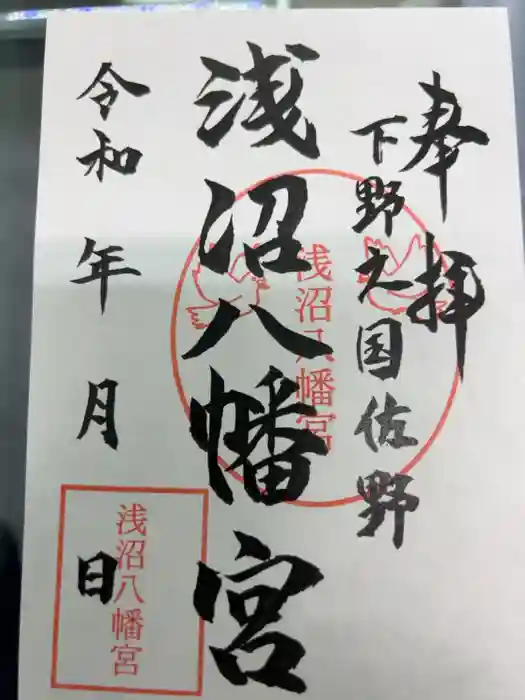 奉拝
下野之国佐野
浅沼八幡宮
浅沼八幡宮
令和 年 月 日
浅沼八幡宮